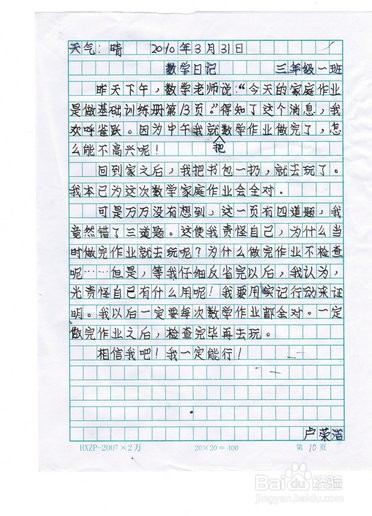 天气：晴 2010年3月31日
数学日记 三年级一班
昨天下午，数学老师说“今天的家庭作业
是做基础训练册第13页。”得知了这个消息，我
欢呼雀跃。因为中午我就把数学作业做完了，怎
么能不高兴呢！
回到家之后，我把书包一扔，就去玩了。
我本已为这次数学家庭作业会全对。
可是万万没有想到，这一页有四道题，我
竟然错了三道题。这使我责怪自己，为什么当
时做完作业就去玩呢？为什么做完作业不检查
呢……但是，等我仔细反省完以后，我认为，
光责怪自己有什么用呢！我要用实际行动来证
明。我以后一定要每次数学作业都全对。一定
做完作业之后，检查完毕再去玩。
相信我吧！我一定能行！
卢荣
HXZP-2007×2万 20×20=400 第18页
Baidu 经验
jingyan.baidu.com